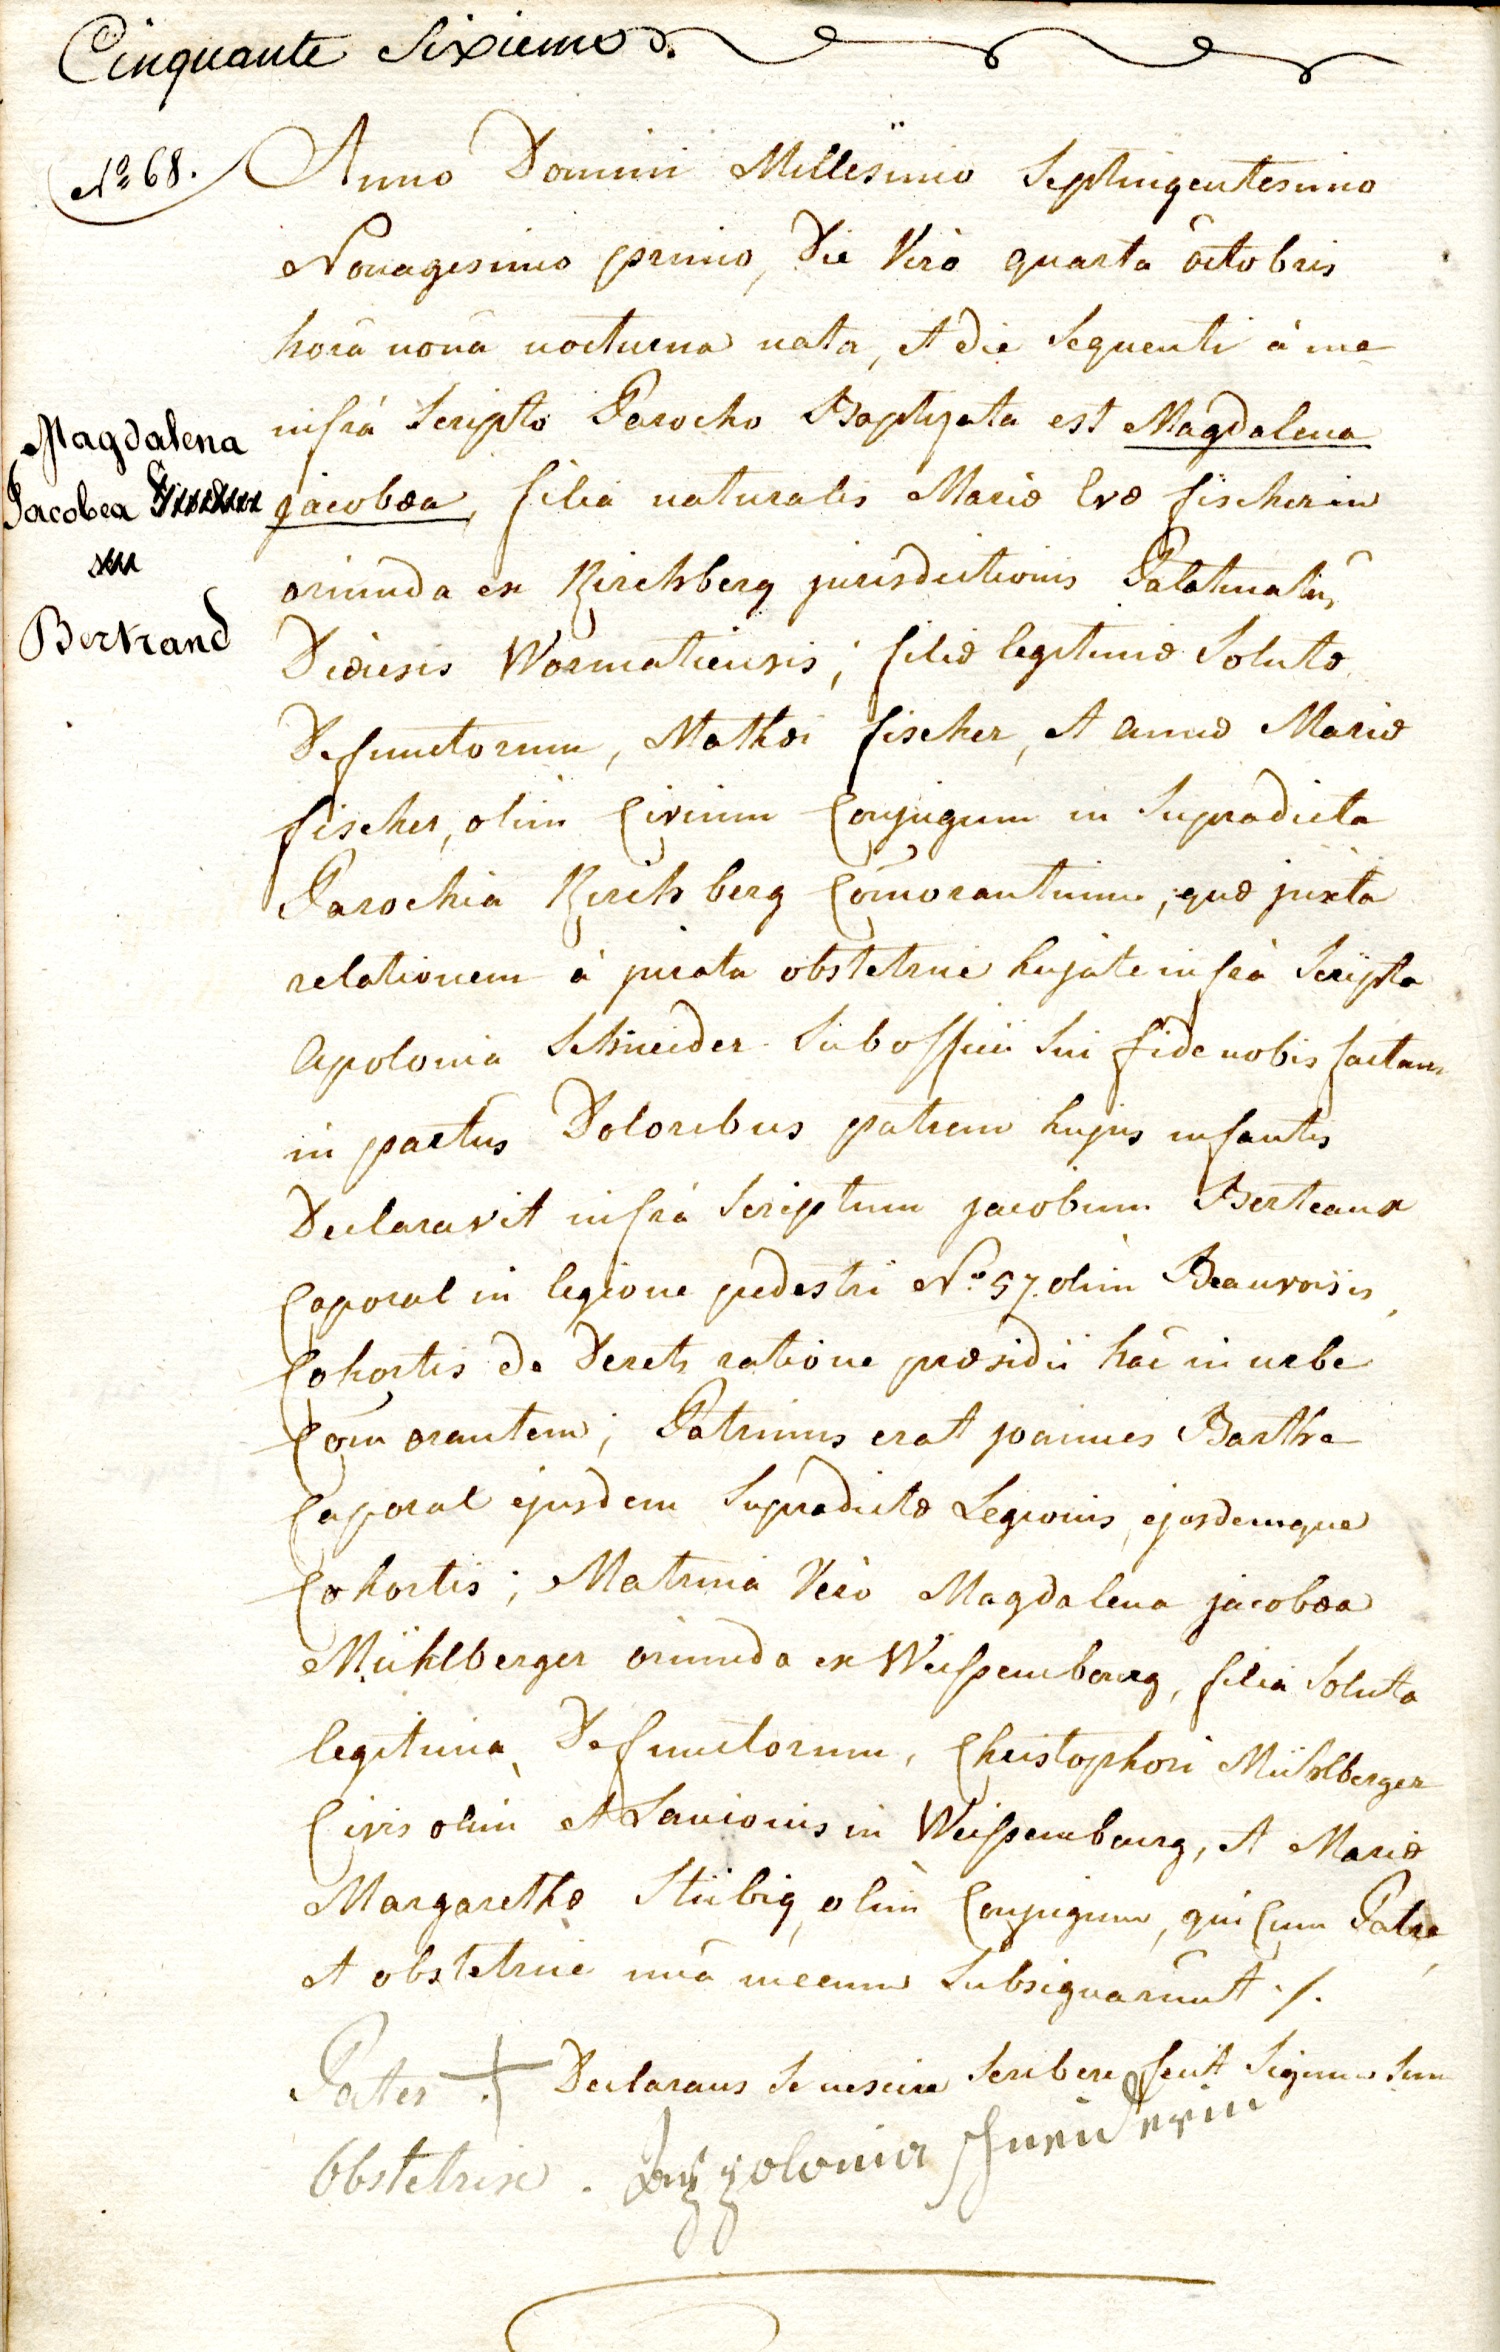 Cinquante Sixieme.
No 68.
Anno Domini Millesimo Septingentesimo
Nonagesimo primo, Die Verò quarta octobris
horâ nonâ nocturna nata, et die Sequenti à me
infrà Scripto Parocho Baptizata est Magdalena
jacobæa, filia naturalis Mariæ Evæ fischerin
oriunda ex Kirchsberg jurisdictionis Palatinatûs,
Diœcesis Wormatiensis; filiæ legitimæ Solutæ
Defunctorum, Mathæi fischer, et annæ Mariæ
fischer, olim Civium Conjugum in Supradicta
Parochia Kirchsberg Com̄orantium, quæ juxta
relationem à jurata obstetrice hujate infrà Scripta
Apolonia Schneider Sub officii Sui fide nobis factam
in partus Doloribus patrem hujus infantis
Declaravit infrà Scriptum jacobum Berteaux
Caporal in legione pedestri No 57. olim Beauvoisis,
Cohortis de Derets ratione præsidii hâc in urbe
Com̄orantem; Patrinus erat joannes Barthe
Caporal ejusdem Supradictæ Legionis, ejusdemque
Cohortis; Matrina Verò Magdalena jacobæa
Mühlberger oriunda ex Weissembourg, filia Soluta
legitima Defunctorum, Christophori Mühlberger
Civis olim et Lanionis in Weissembourg, et Mariæ
Margarethæ Stübig, olim Conjugum, qui Cum Patre,
et obstetrice unà mecum Subsignarunt ./.
Pater + Declarans Se nescire Scribere fecit Signum Suum
Obstetrix. Appolonia Schneiderin
Magdalena
Jacobea
Bertrand